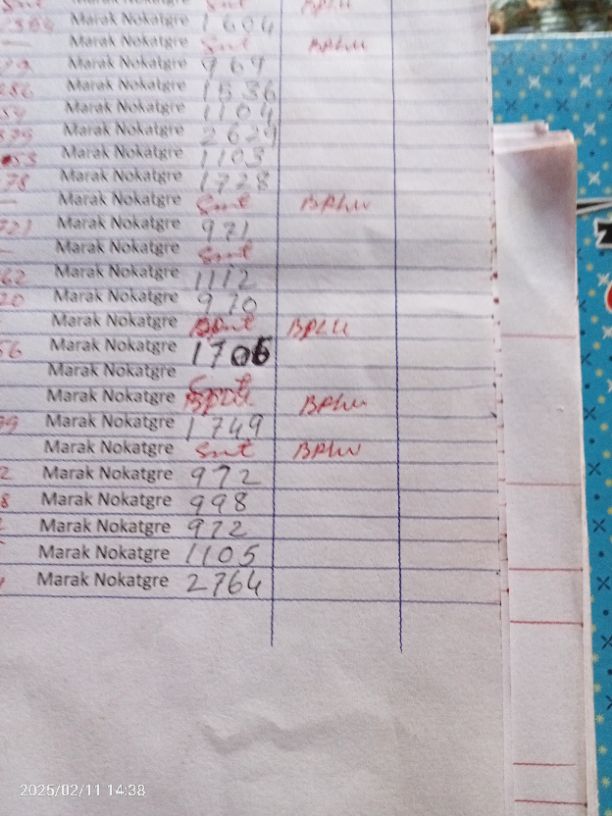 Marak Nokatgre
1364 Marak Nokatgre 1604
— Marak Nokatgre Smt BPLW
Marak Nokatgre 969
286 Marak Nokatgre 1536
Marak Nokatgre 1104
Marak Nokatgre 2629
53 Marak Nokatgre 1103
78 Marak Nokatgre 1728
— Marak Nokatgre Smt BPLW
721 Marak Nokatgre 971
Marak Nokatgre Smt
62 Marak Nokatgre 1112
20 Marak Nokatgre 970
Marak Nokatgre BPLU
56 Marak Nokatgre 1706
Marak Nokatgre Smt
Marak Nokatgre BPLW
99 Marak Nokatgre 1749
Marak Nokatgre Smt BPLW
2 Marak Nokatgre 972
8 Marak Nokatgre 998
Marak Nokatgre 972
Marak Nokatgre 1105
Marak Nokatgre 2764
2025/02/11 14:38